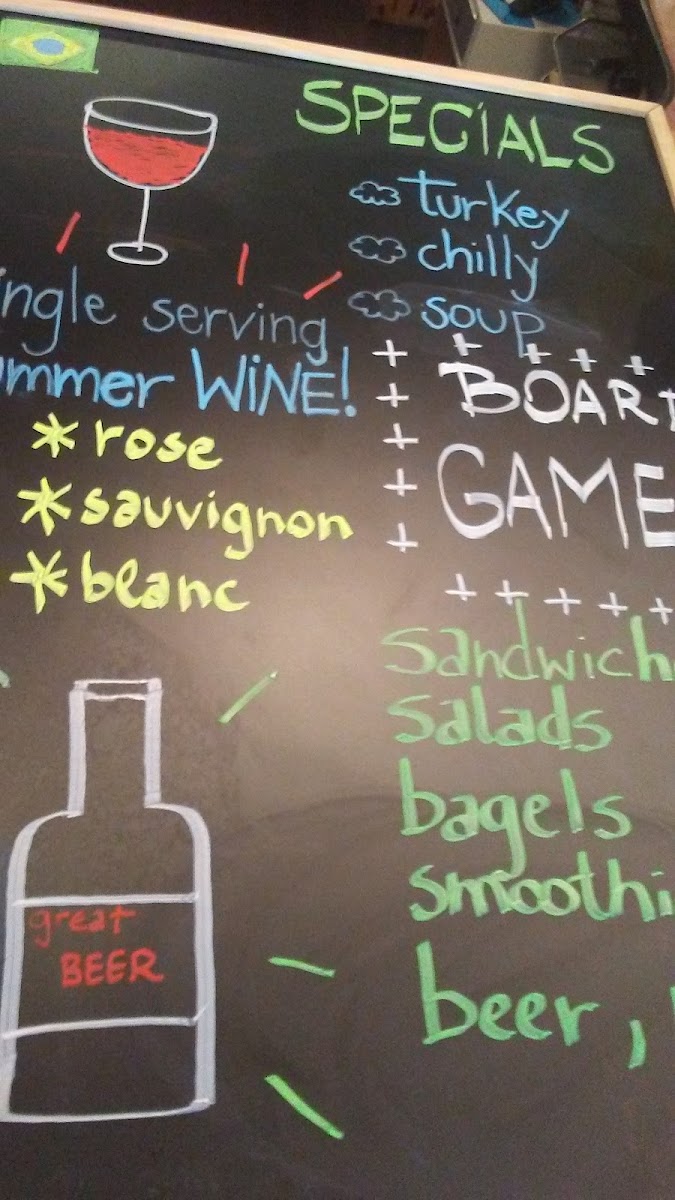 SPECIALS
turkey
chilly
soup
ingle serving
ummer WINE!
*rose
*sauvignon
*blanc
BOARD
GAME
sandwich
salads
bagels
smoothi
beer,
great
BEER